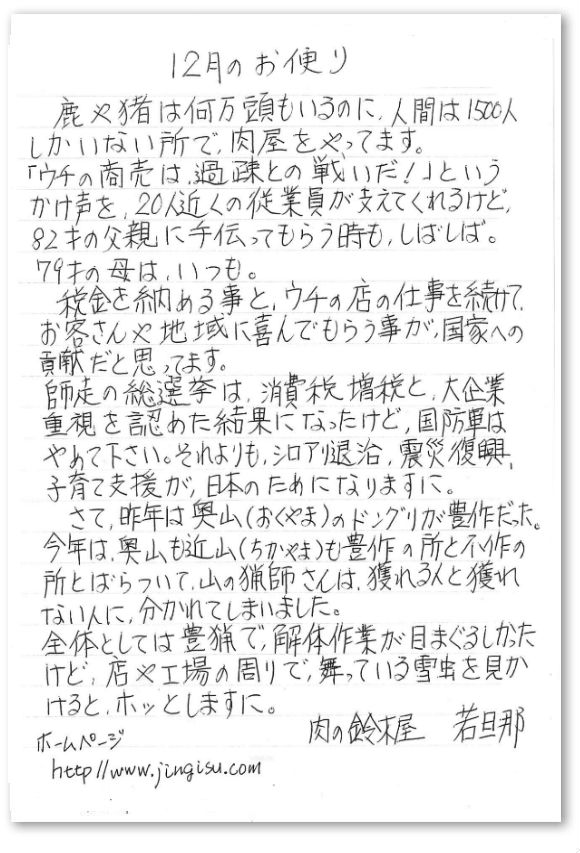 12月のお便り
鹿や猪は何万頭もいるのに、人間は1500人
しかいない所で、肉屋をやってます。
「ウチの商売は、過疎との戦いだ!」という
かけ声を、20人近くの従業員が支えてくれるけど、
82才の父親に手伝ってもらう時も、しばしば。
79才の母は、いつも。
税金を納める事と、ウチの店の仕事を続けて、
お客さんや地域に喜んでもらう事が、国家への
貢献だと思ってます。
師走の総選挙は、消費税増税と、大企業
重視を認めた結果になったけど、国防軍は
やめて下さい。それよりも、シロアリ退治、震災復興、
子育て支援が、日本のためになりますに。
さて、昨年は奥山(おくやま)のドングリが豊作だった。
今年は、奥山も近山(ちかやま)も豊作の所と不作の
所とばらついて、山の猟師さんは、獲れる人と獲れ
ない人に、分かれてしまいました。
全体としては豊猟で、解体作業が目まぐるしかった
けど、店や工場の周りで、舞っている雪虫を見か
けると、ホッとしますに。
肉の鈴木屋 若旦那
ホームページ
http://www.jingisu.com